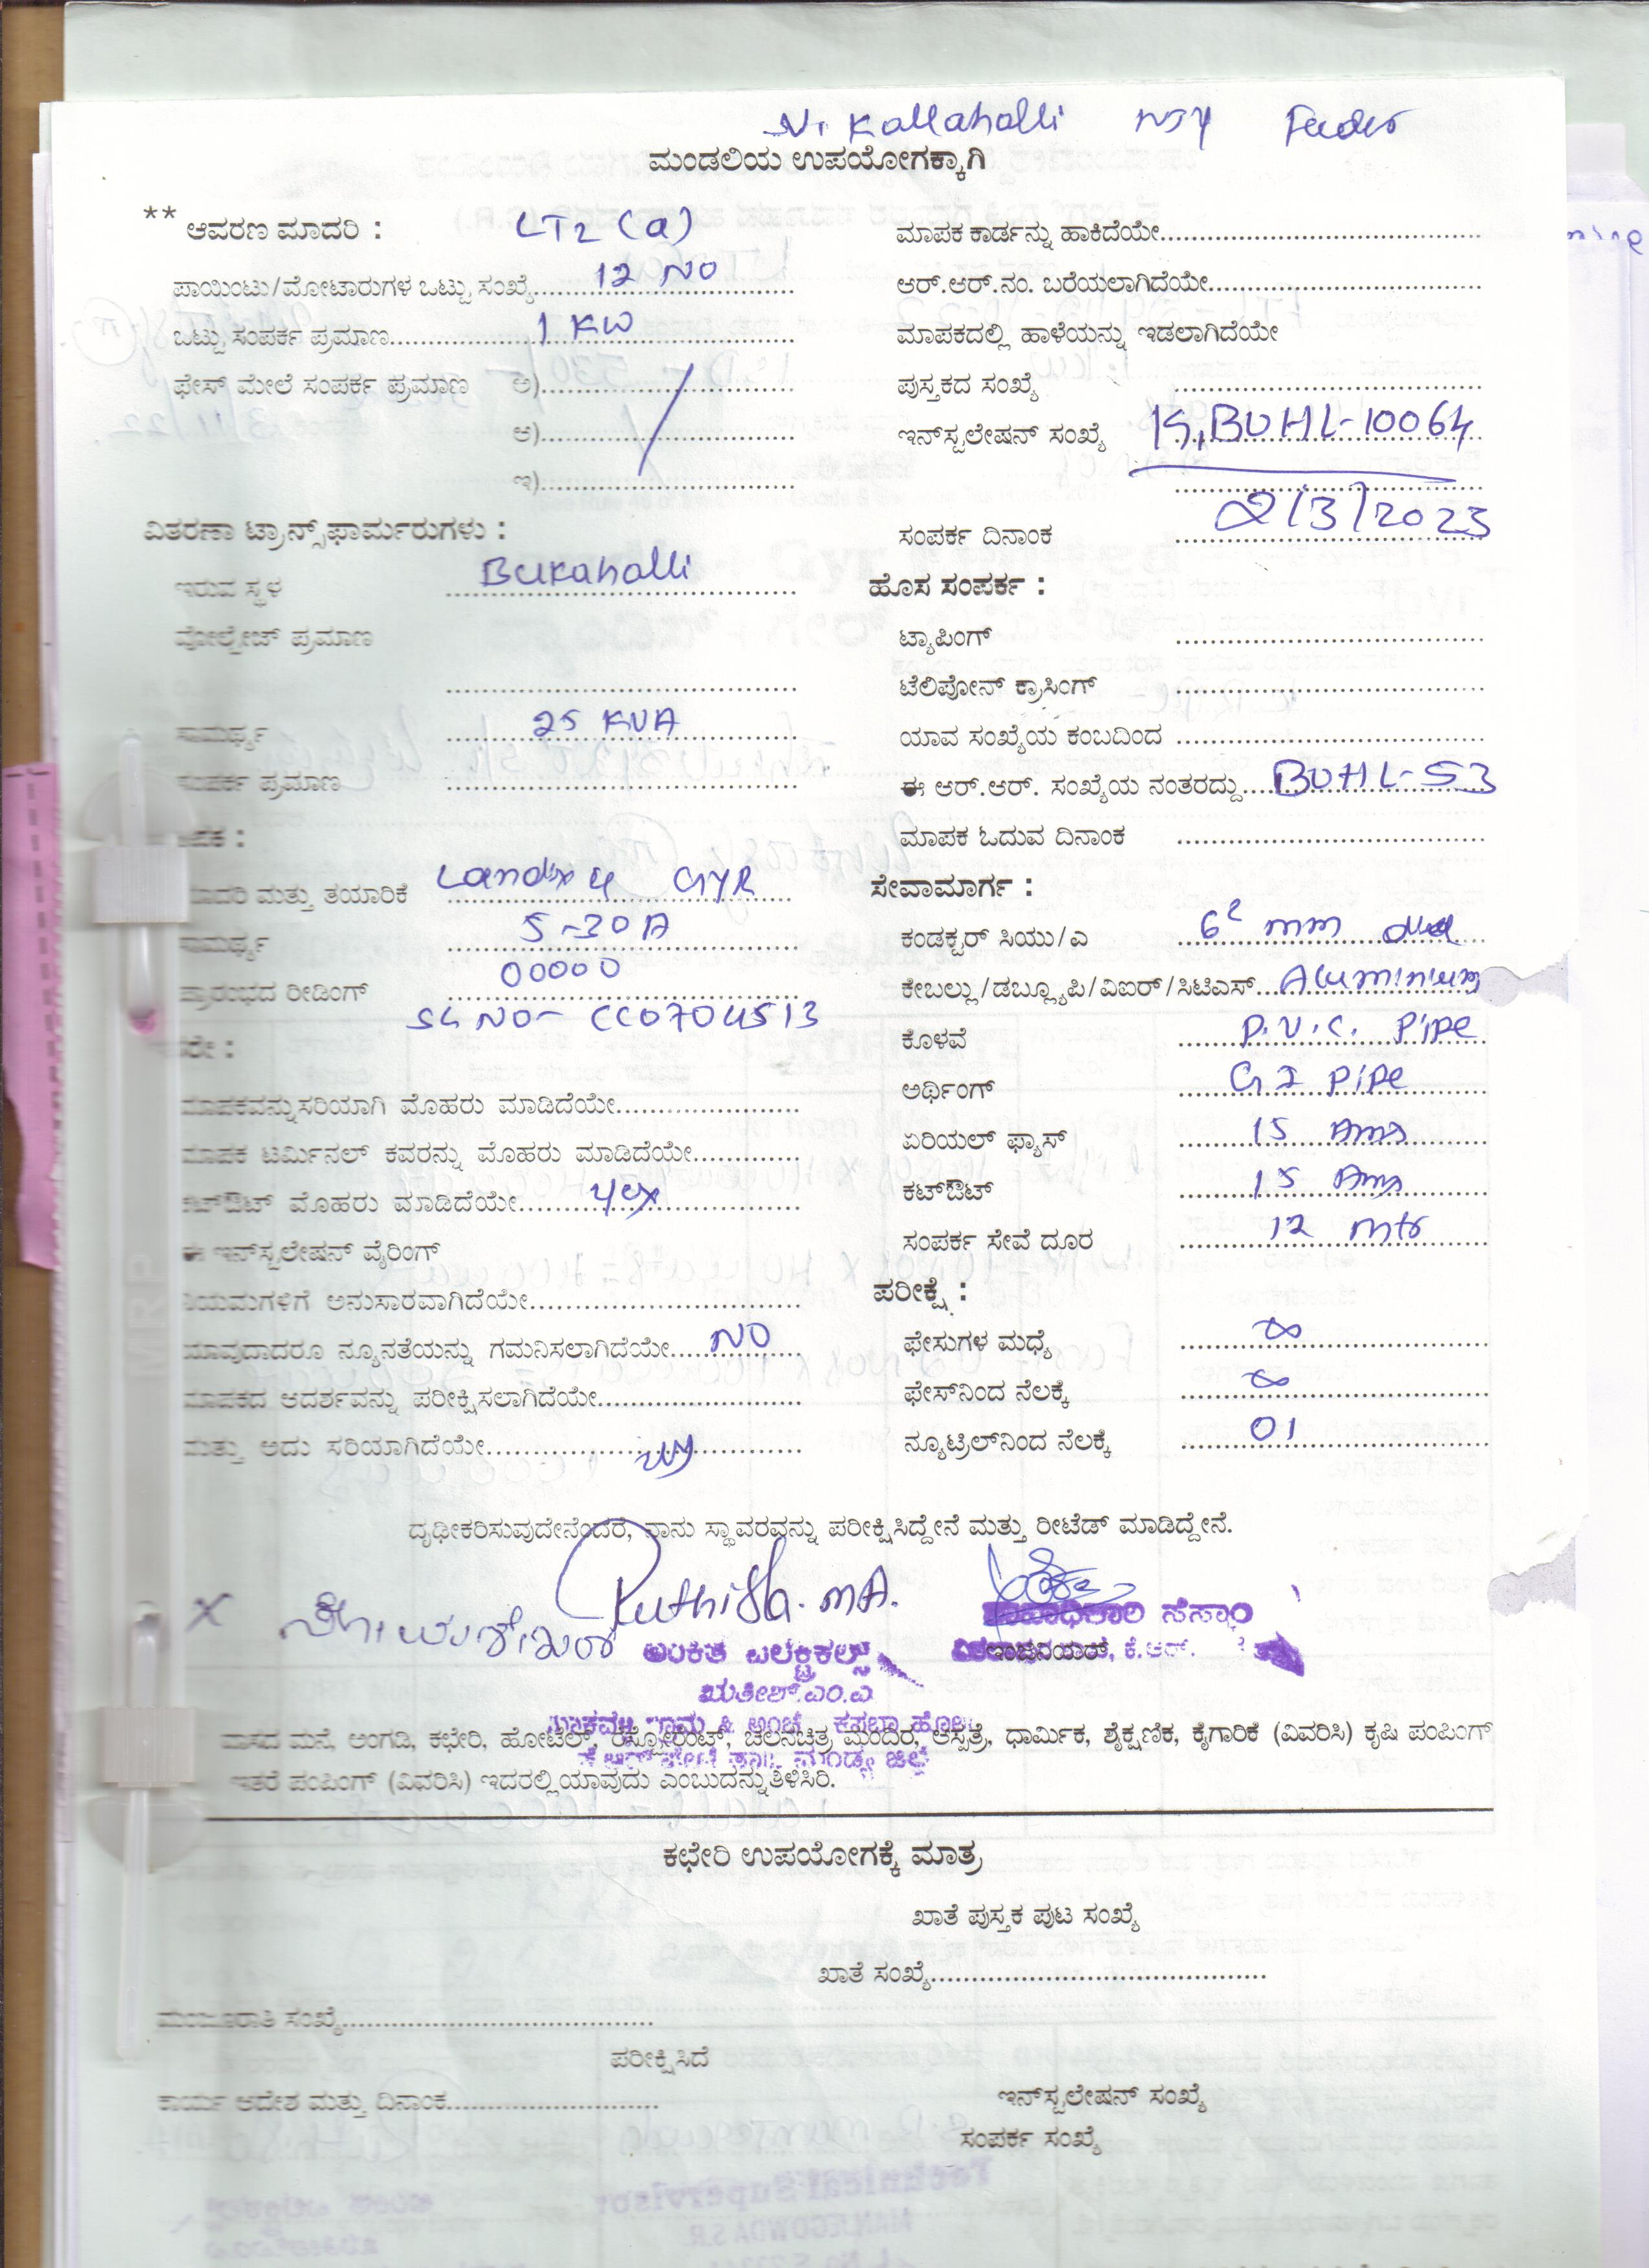 N. Kallahalli NJY Feeder
ಮಂಡಲಿಯ ಉಪಯೋಗಕ್ಕಾಗಿ
** ಆವರಣ ಮಾದರಿ : LT2 (a)
ಪಾಯಿಂಟು/ಮೋಟಾರುಗಳ ಒಟ್ಟು ಸಂಖ್ಯೆ.... 12 NO
ಒಟ್ಟು ಸಂಪರ್ಕ ಪ್ರಮಾಣ.... 1 KW
ಫೇಸ್ ಮೇಲೆ ಸಂಪರ್ಕ ಪ್ರಮಾಣ ಅ)....
ಆ)....
ಇ)....
ವಿತರಣಾ ಟ್ರಾನ್ಸ್‌ಫಾರ್ಮರುಗಳು :
ಇರುವ ಸ್ಥಳ Bukahalli
ವೋಲ್ಟೇಜ್ ಪ್ರಮಾಣ
ಸಾಮರ್ಥ್ಯ 25 KVA
ಸಂಪರ್ಕ ಪ್ರಮಾಣ
ಮಾದರಿ ಮತ್ತು ತಯಾರಿಕೆ Landis & GYR
ಸಾಮರ್ಥ್ಯ 5-30A
ಪ್ರಾರಂಭದ ರೀಡಿಂಗ್ 00000
SL NO- CC0704513
ಮಾಪಕವನ್ನುಸರಿಯಾಗಿ ಮೊಹರು ಮಾಡಿದೆಯೇ....
ಮಾಪಕ ಟರ್ಮಿನಲ್ ಕವರನ್ನು ಮೊಹರು ಮಾಡಿದೆಯೇ....
ಕಟ್‌ಔಟ್ ಮೊಹರು ಮಾಡಿದೆಯೇ.... yes
ಈ ಇನ್‌ಸ್ಟಲೇಷನ್ ವೈರಿಂಗ್
ನಿಯಮಗಳಿಗೆ ಅನುಸಾರವಾಗಿದೆಯೇ....
ಯಾವುದಾದರೂ ನ್ಯೂನತೆಯನ್ನು ಗಮನಿಸಲಾಗಿದೆಯೇ.... NO
ಮಾಪಕದ ಆದರ್ಶವನ್ನು ಪರೀಕ್ಷಿಸಲಾಗಿದೆಯೇ....
ಮತ್ತು ಅದು ಸರಿಯಾಗಿದೆಯೇ....
ಮಾಪಕ ಕಾರ್ಡನ್ನು ಹಾಕಿದೆಯೇ....
ಆರ್.ಆರ್.ನಂ. ಬರೆಯಲಾಗಿದೆಯೇ....
ಮಾಪಕದಲ್ಲಿ ಹಾಳೆಯನ್ನು ಇಡಲಾಗಿದೆಯೇ
ಪುಸ್ತಕದ ಸಂಖ್ಯೆ
ಇನ್‌ಸ್ಟಲೇಷನ್ ಸಂಖ್ಯೆ BUHL-10064
ಸಂಪರ್ಕ ದಿನಾಂಕ 2/3/2023
ಹೊಸ ಸಂಪರ್ಕ :
ಟ್ಯಾಪಿಂಗ್
ಟೆಲಿಪೋನ್ ಕ್ರಾಸಿಂಗ್
ಯಾವ ಸಂಖ್ಯೆಯ ಕಂಬದಿಂದ
ಈ ಆರ್.ಆರ್. ಸಂಖ್ಯೆಯ ನಂತರದ್ದು.... BUHL-53
ಮಾಪಕ ಓದುವ ದಿನಾಂಕ
ಸೇವಾಮಾರ್ಗ :
ಕಂಡಕ್ಟರ್ ಸಿಯು/ಎ 6² mm
ಕೇಬಲ್ಲು/ಡಬ್ಲ್ಯೂಪಿ/ವಿಐರ್/ಸಿಟಿಎಸ್.... Aluminium
ಕೊಳವೆ P.V.C. Pipe
ಅರ್ಥಿಂಗ್ GI Pipe
ಏರಿಯಲ್ ಫ್ಯಾಸ್ 15 Ams
ಕಟ್‌ಔಟ್ 15 Ams
ಸಂಪರ್ಕ ಸೇವೆ ದೂರ 12 mtr
ಪರೀಕ್ಷೆ :
ಫೇಸುಗಳ ಮಧ್ಯೆ ∞
ಫೇಸ್‌ನಿಂದ ನೆಲಕ್ಕೆ ∞
ನ್ಯೂಟ್ರಿಲ್‌ನಿಂದ ನೆಲಕ್ಕೆ 01
ದೃಢೀಕರಿಸುವುದೇನೆಂದರೆ, ನಾನು ಸ್ಥಾವರವನ್ನು ಪರೀಕ್ಷಿಸಿದ್ದೇನೆ ಮತ್ತು ರೀಟೆಡ್ ಮಾಡಿದ್ದೇನೆ.
X Ruthisha. M A.
ಅಂಕಿತ ಎಲೆಕ್ಟ್ರಿಕಲ್ಸ್
ಇಂಜಿನಿಯರ್, ಕೆ.ಆರ್.
ಋತೀಶ್.ಎಂ.ಎ
ವಾಸದ ಮನೆ, ಅಂಗಡಿ, ಕಛೇರಿ, ಹೋಟೆಲ್, ರೆಸ್ಟೋರೆಂಟ್, ಚಲನಚಿತ್ರ ಮಂದಿರ, ಆಸ್ಪತ್ರೆ, ಧಾರ್ಮಿಕ, ಶೈಕ್ಷಣಿಕ, ಕೈಗಾರಿಕೆ (ವಿವರಿಸಿ) ಕೃಷಿ ಪಂಪಿಂಗ್
ಇತರೆ ಪಂಪಿಂಗ್ (ವಿವರಿಸಿ) ಇದರಲ್ಲಿಯಾವುದು ಎಂಬುದನ್ನುತಿಳಿಸಿರಿ.
ಕಛೇರಿ ಉಪಯೋಗಕ್ಕೆ ಮಾತ್ರ
ಖಾತೆ ಪುಸ್ತಕ ಪುಟ ಸಂಖ್ಯೆ
ಖಾತೆ ಸಂಖ್ಯೆ....
ಮಂಜೂರಾತಿ ಸಂಖ್ಯೆ....
ಪರೀಕ್ಷಿಸಿದೆ
ಕಾರ್ಯ ಆದೇಶ ಮತ್ತು ದಿನಾಂಕ....
ಇನ್‌ಸ್ಟಲೇಷನ್ ಸಂಖ್ಯೆ
ಸಂಪರ್ಕ ಸಂಖ್ಯೆ